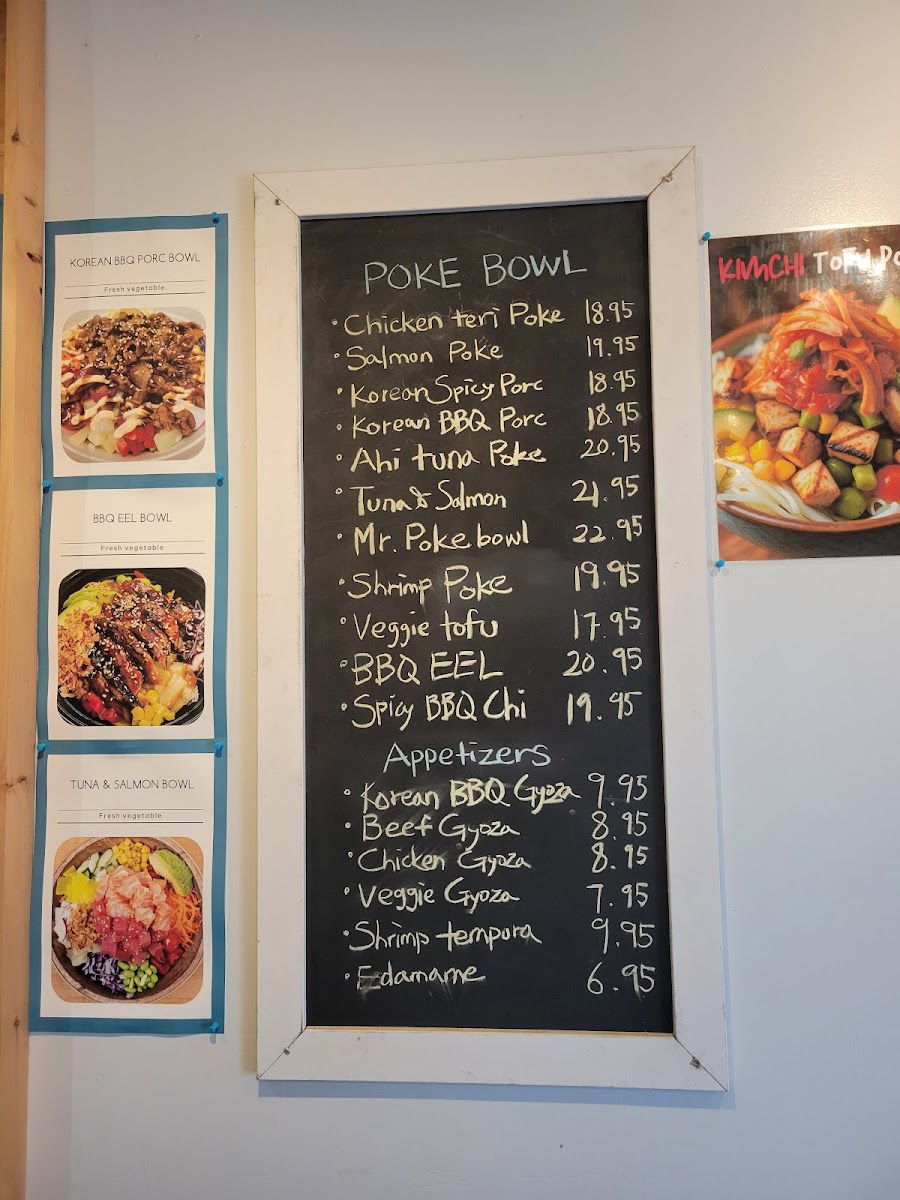 KOREAN BBQ PORC BOWL
Fresh vegetable
BBQ EEL BOWL
Fresh vegetable
TUNA & SALMON BOWL
Fresh vegetable
POKE BOWL
• Chicken teri Poke 18.95
• Salmon Poke 19.95
• Korean Spicy Porc 18.95
• Korean BBQ Porc 18.95
• Ahi tuna Poke 20.95
• Tuna & Salmon 21.95
• Mr. Poke bowl 22.95
• Shrimp Poke 19.95
• Veggie tofu 17.95
• BBQ EEL 20.95
• Spicy BBQ Chi 19.95
Appetizers
• Korean BBQ Gyoza 9.95
• Beef Gyoza 8.95
• Chicken Gyoza 8.95
• Veggie Gyoza 7.95
• Shrimp tempora 9.95
• Edamame 6.95
KIMCHI TOFU PO